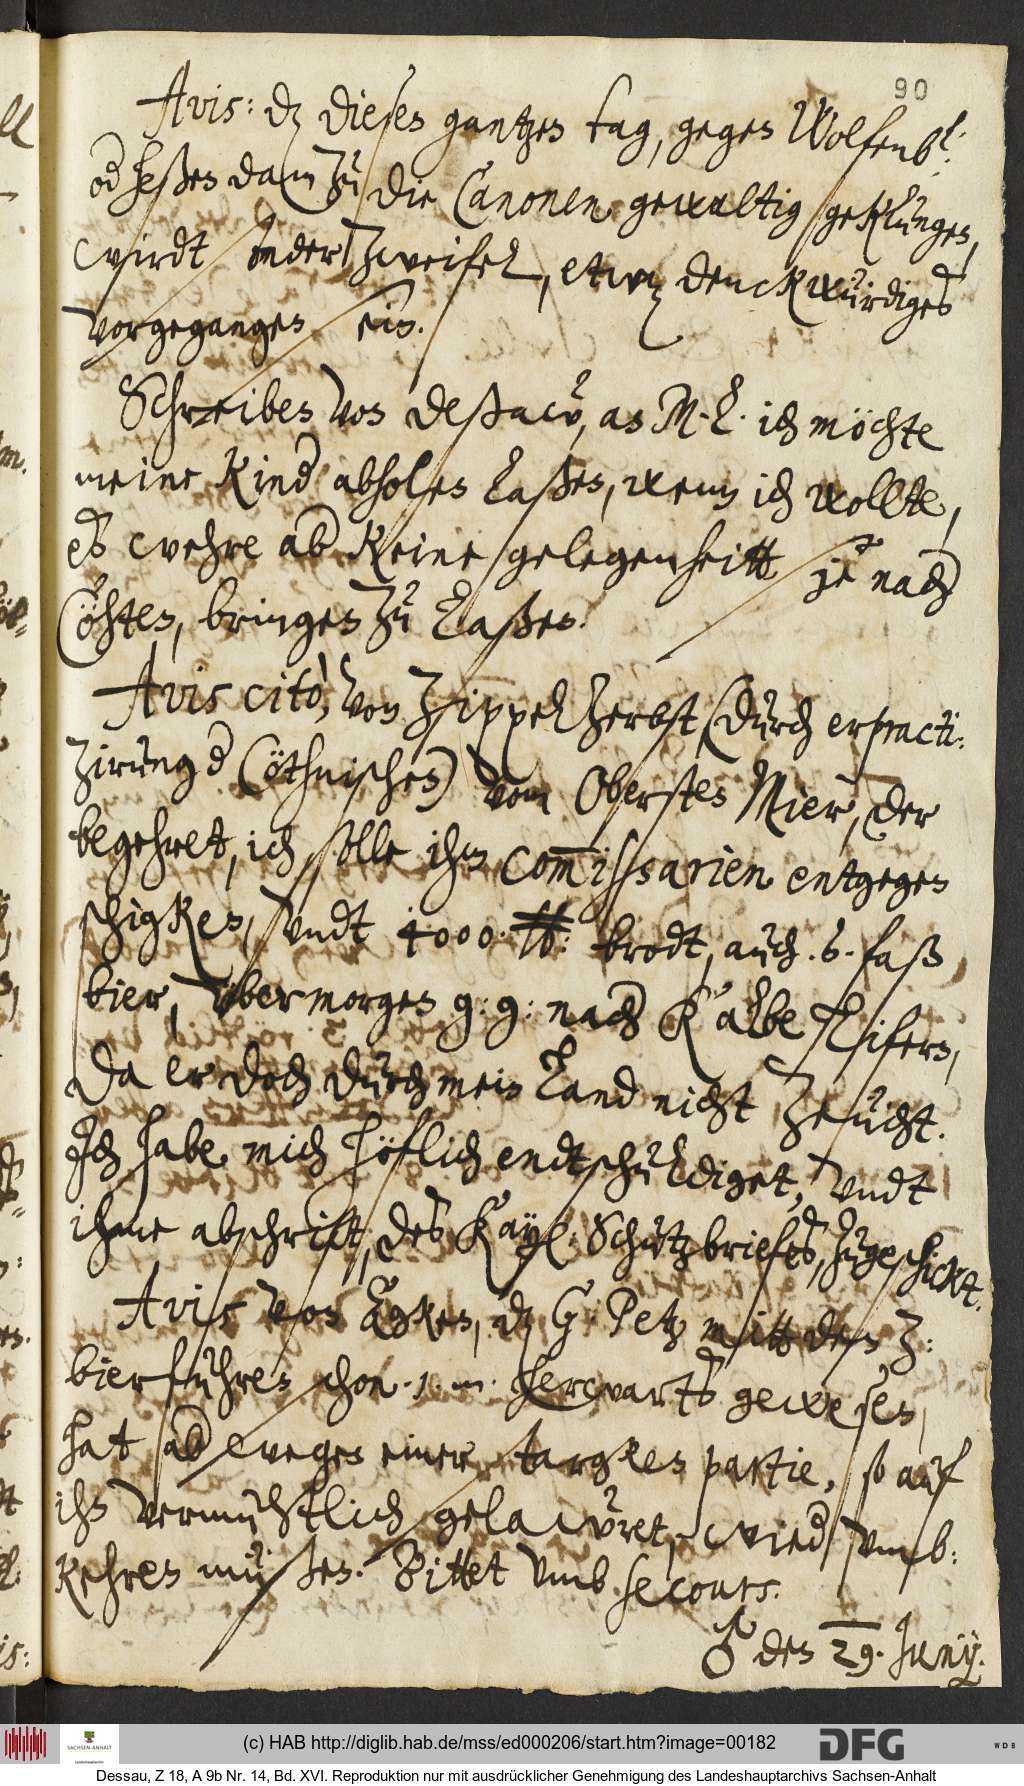 90
Avis: dz diesen gantzen tag, gegen Wolfenb.l:
od heßen damm zu die Canonen gewaltig geklungen,
wirdt ohnezweifel, etwz denckwürdiges
vorgegangen sein.
Schreiben von Deßaw, an M. L. ich möchte
meine Kinder abholen laßen, wenn ich wollte,
es wehre aber keine gelegenheitt sje nach
Cöhten, bringen zu laßen.
Avis cito, von Zippel Zerbst, (durch erpracti-
zirung der Cöthnischen) vom Obersten Mier, der
begehret, ich solle ihm Commissarien entgegen
schigken, vndt 4000 ℔: brodt, auch 6 faß
bier, vbermorgen g: g: nach Kalbe lifern,
da er doch durch mein Land nicht zeücht.
Ich habe mich höflich endtschuldiget, vndt
ihme abschrift, des Kayß: Schutzbriefes, zugeschickt.
Avis von Egken, dz G. Petz mitt den Z:
bierfuhren schon 1 m. herwarts gewesen,
hat aber wegen einer stargken partie, so auf
ihn vermuhtlich gelawret, wieder vmb:
kehren müßen. Bittet vmb secours.
♂ den 29. Junÿ.
(c) HAB http://diglib.hab.de/mss/ed000206/start.htm?image=00182
SACHSEN-ANHALT
DFG
WDB
Dessau, Z 18, A 9b Nr. 14, Bd. XVI. Reproduktion nur mit ausdrücklicher Genehmigung des Landeshauptarchivs Sachsen-Anhalt